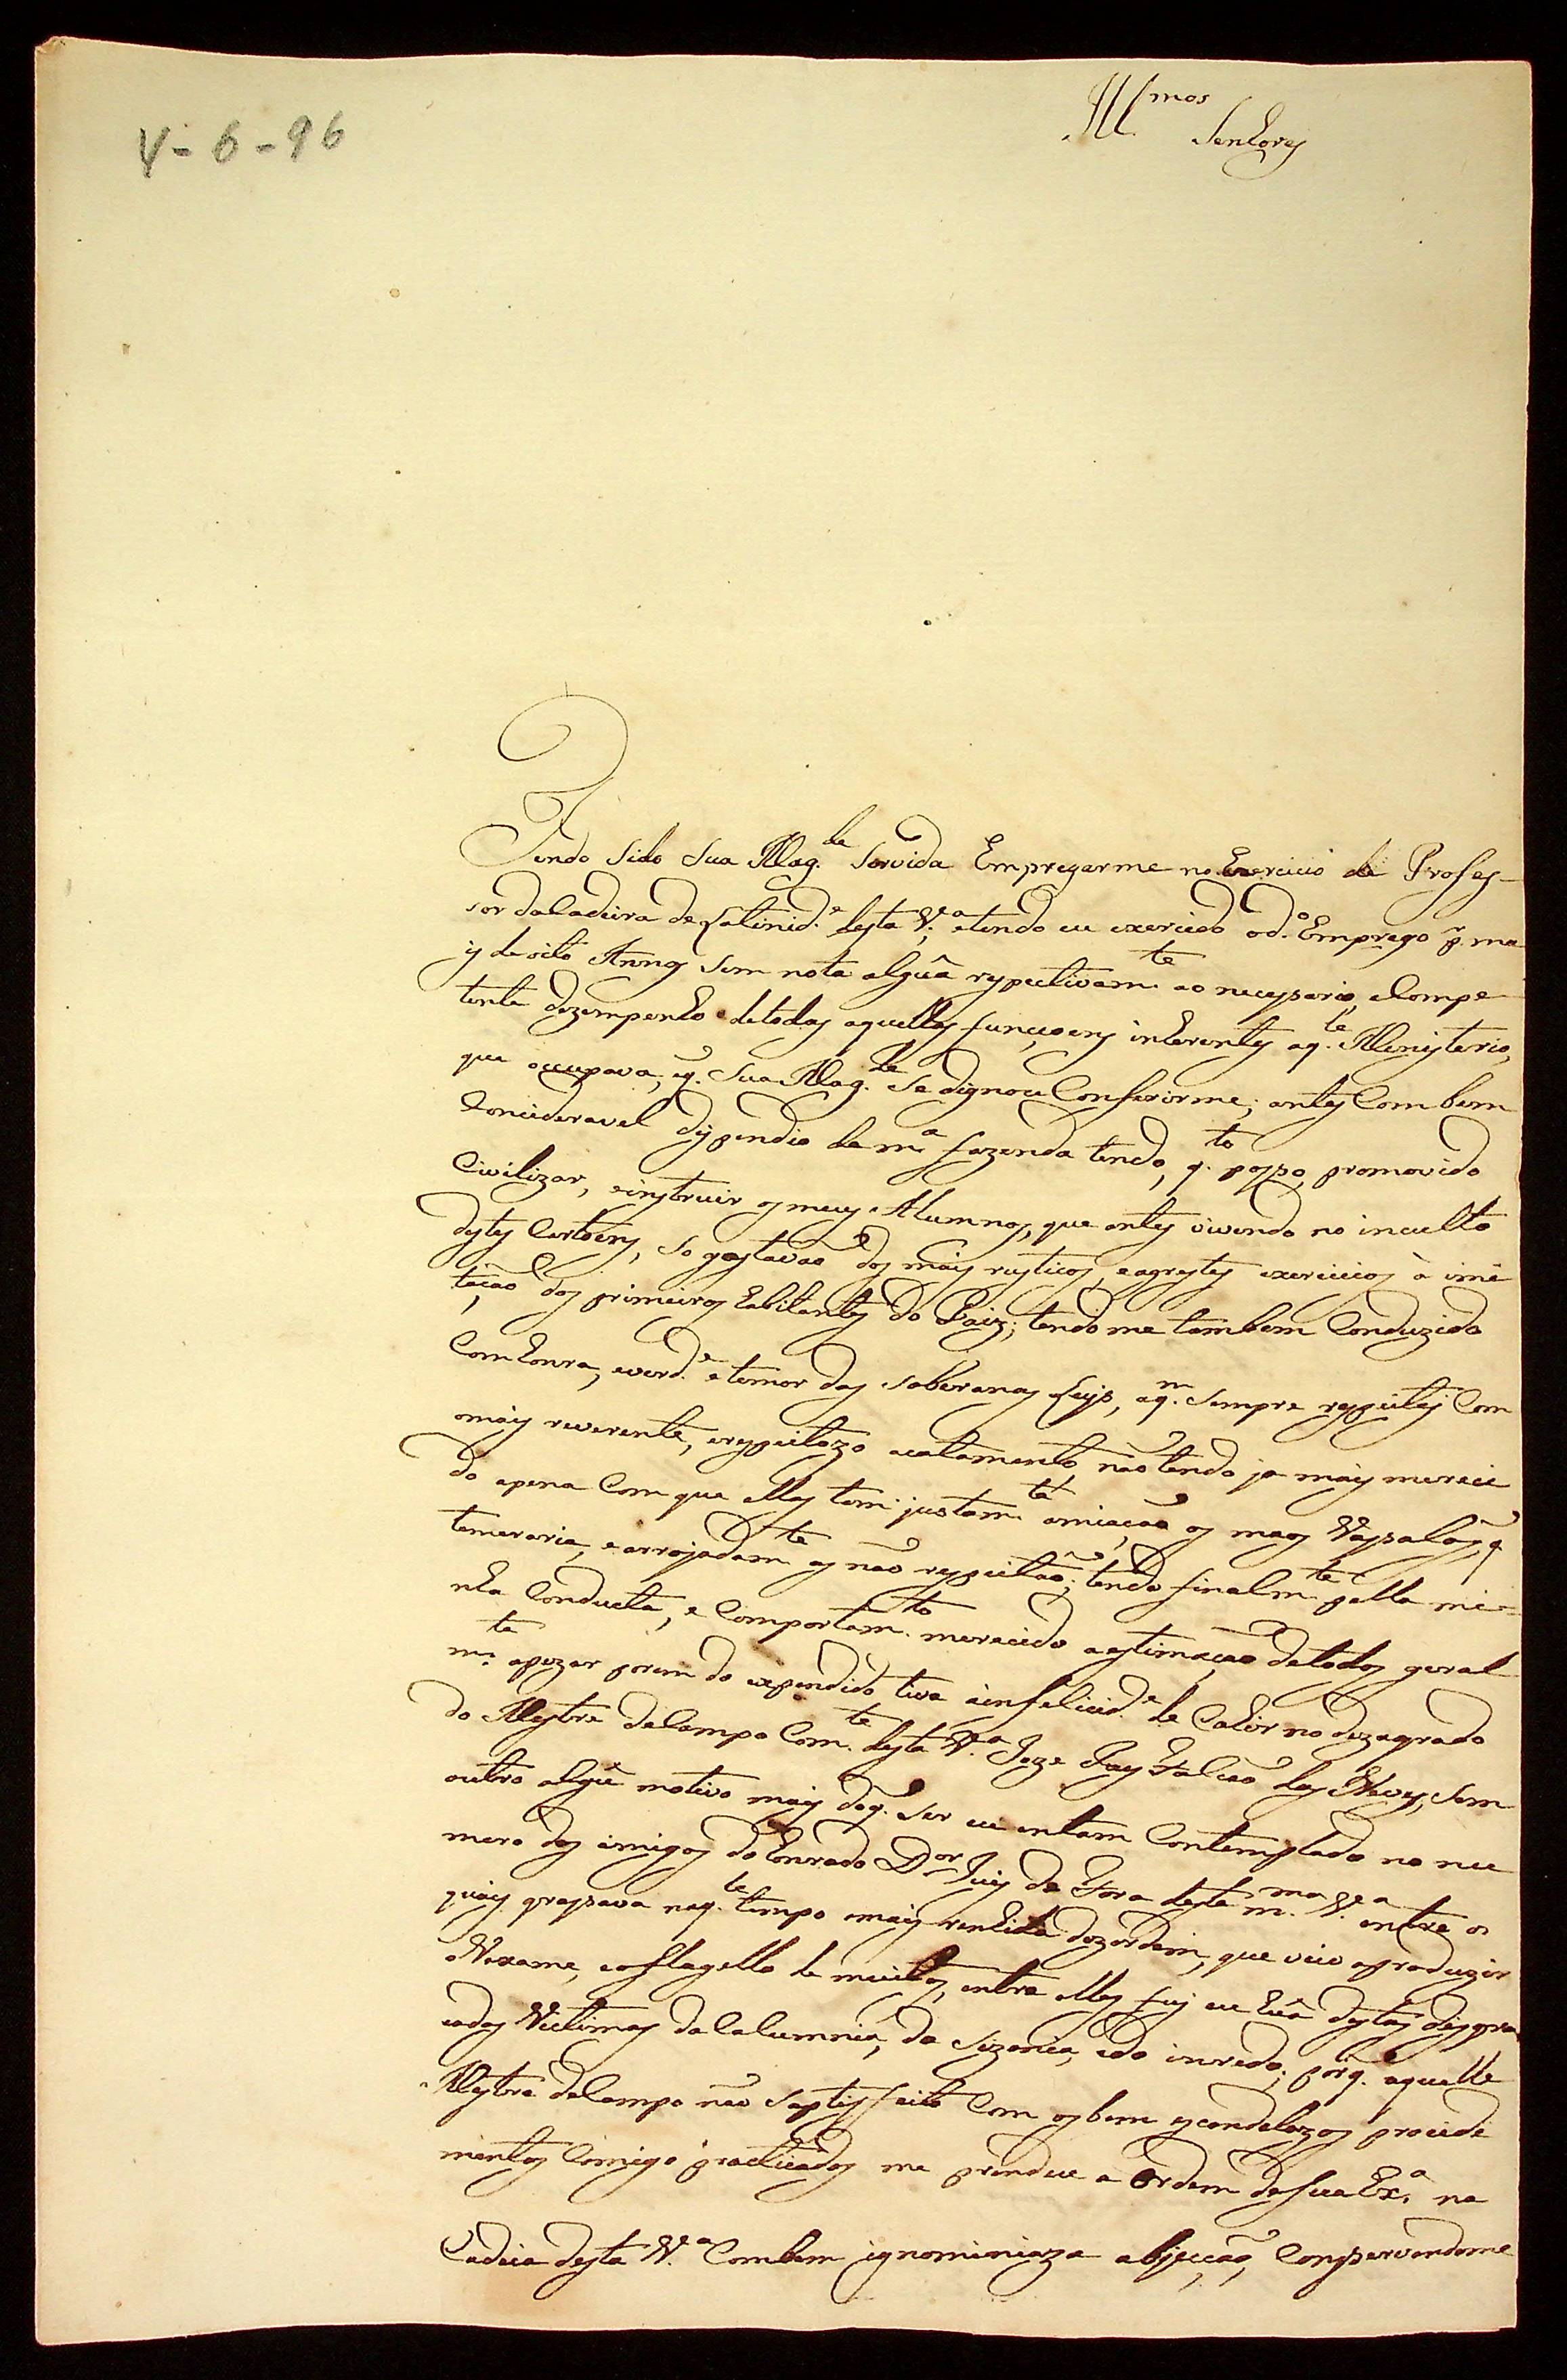 V-6-96
Ill.mos Senhores
Tendo sido Sua Mag.de Servida Empregarme no Exercicio de Profes-
sor da Cadeira de Latinid.e desta V.a, e tendo eu exercido o d.o Emprego p. ma
is de oito Annos sem nota algũa respectivam.te ao necessario, e Compe
tente dezempenho de todas aquellas funçuoens inherentes aq.le Menisterio,
que occupava, e q. Sua Mag.de Se dignou Conferirme; antes Com bem
Concideravel dispendio de m.a fazenda tendo, q.to posso, promovido
Civilizar, e instruir os meus Alumnos, que antes vivendo no inculto
destes Certoens, so gostavão dos mais rusticos, e agrestes exercicios à imi
tação dos primeiros habitantes do Paiz; tendome tambem Conduzido
Com honra, e verd.e e temor das soberanas Leys, aq.m sempre respeitej Com
o mais reverente, e respeitozo acatamento, não tendo ja mais mereci
do a pena Com que ellas tem justam.te amiaçao os maos Vassalos, q
temeraria, e arrojadam.te as não respeitão; tendo finalm.te pella mi-
nha Conducta, e Comportam.to merecido a estimação de todos geral
m.te apezar porem do expendido, tive a infelicid.e de Cahir no dezagrado
do Mestre de Campo Com.te desta V.a Joze Falcão das Neves, sem
outro algũ motivo mais do q. ser eu entam Contemplado no nu
mero dos amigos do honrado D.or Juis de Fora desta m.ma V.a entre os
quais grassava naq.le tempo a mais renhida dezordem, que veio a produzir
o Vexame, e o flagello de muitos, entre elles fuj eu hũa destas desgra
çadas Victimas da Calumnia, da Sizania, e do inredo; porq. aquelle
Mestre de Campo não Saptisfeito Com os bem escandalozos procidi
mentos Comigo practicados me prendeu a Ordem de Sua Ex.a na
Cadeia desta V.a Com bem ignominioza abjecção, Conservandome